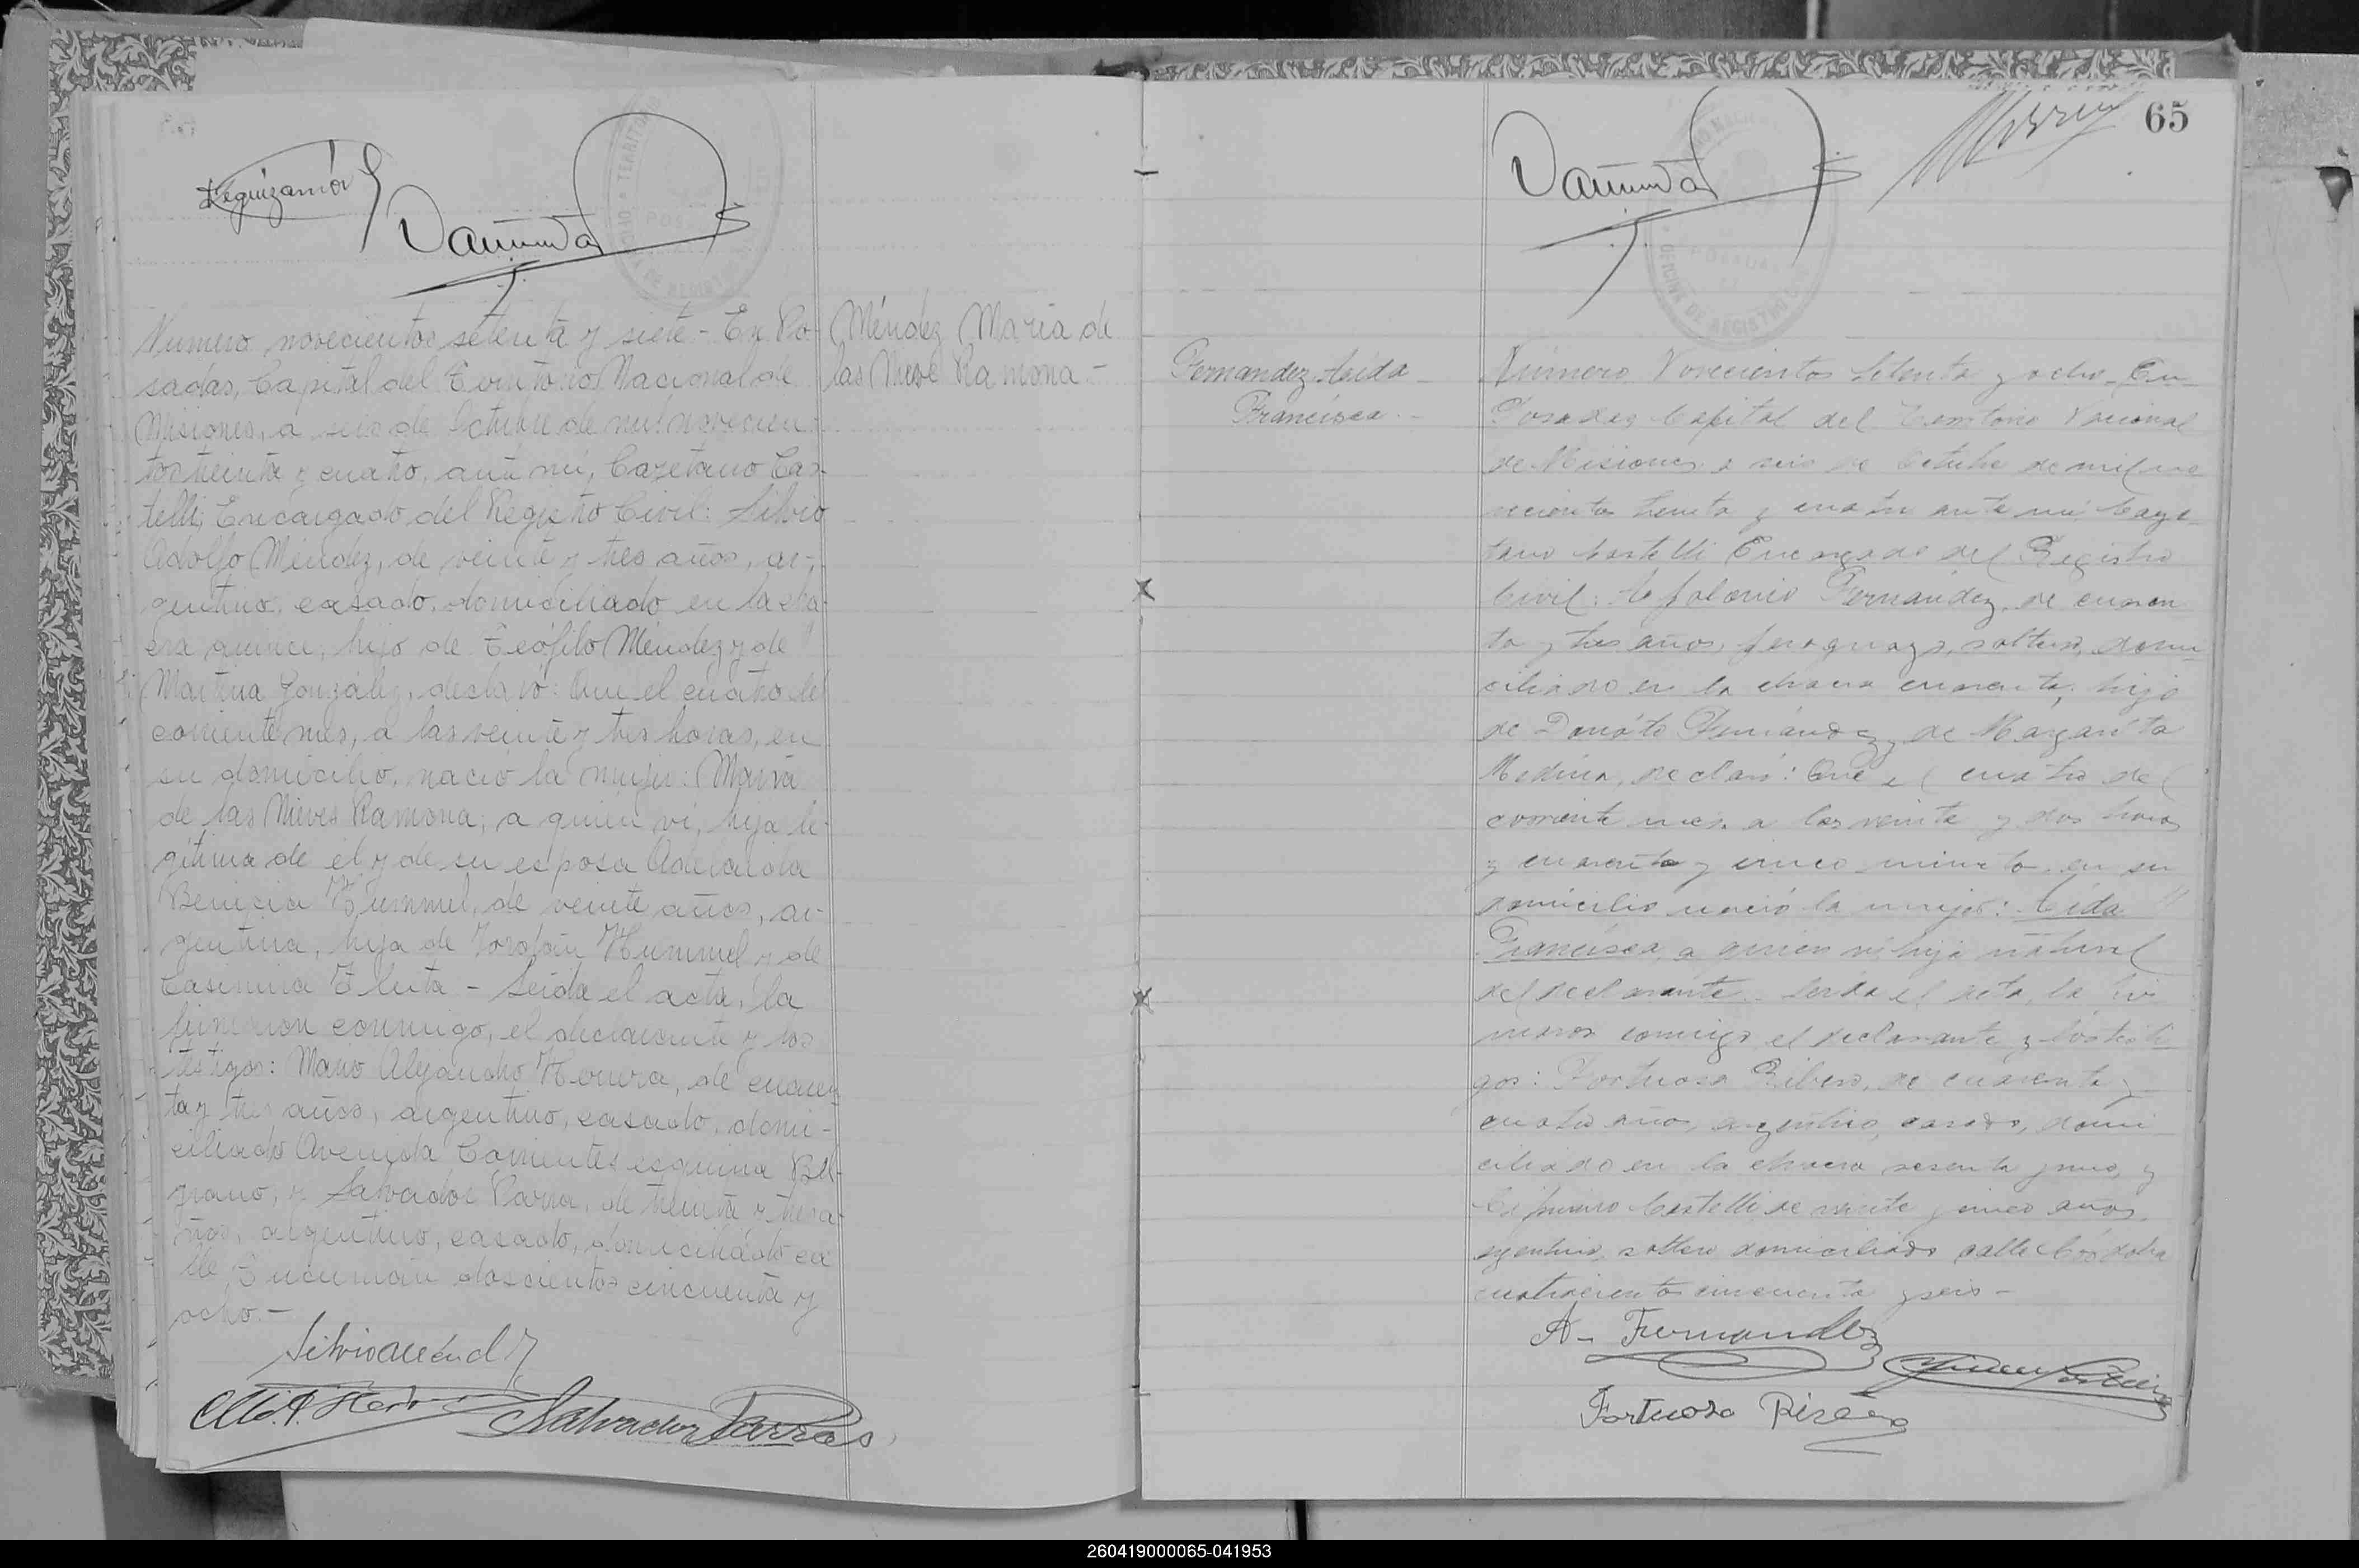 Leguizamón
TERRITORIO
POSADAS
Numero novecientos setenta y siete - En Po-
sadas, Capital del Territorio Nacional de
Misiones, a seis de Octubre de mil novecien-
tos treinta y cuatro, ante mí, Cayetano Cas-
telli, Encargado del Registro Civil: Silvio
Adolfo Méndez, de veinte y tres años, ar-
gentino, casado, domiciliado en la cha-
cra quince, hijo de Teófilo Méndez y de
Martina González, declaró: Que el cuatro del
corriente mes, a las veinte y tres horas, en
su domicilio, nació la mujer: María
de las Nieves Ramona, a quien vi, hija le-
gítima de él y de su esposa Adelaida
Benicia Hummel, de veinte años, ar-
gentina, hija de Jordán Hummel y de
Casimira - Leída el acta, la
firmaron conmigo, el declarante y los
testigos: Mario Alejandro Herrera, de cuaren-
ta y tres años, argentino, casado, domi-
ciliado Avenida Corrientes esquina Bel-
grano, y Salvador Parra, de treinta y tres a-
ños, argentino, casado, domiciliado ca-
lle Tucumán doscientos cincuenta y
ocho. -
Silvio Mendez
Salvador Parras
Méndez María de
las Nieve Ramona -
65
POSADAS
OFICINA DE REGISTRO
Fernandez Aída
Francisca. -
Número Novecientos setenta y ocho - En
Posadas Capital del Territorio Nacional
de Misiones a seis de Octubre de mil no
vecientos treinta y cuatro ante mí, Caye
tano Castelli Encargado del Registro
Civil: Apolonio Fernández, de cuaren
ta y tres años, paraguayo, soltero, domi
ciliado en la chacra cuarenta, hijo
de Donato Fernández y de Margarita
Medina, declaró: Que el cuatro del
corriente mes, a las veinte y dos horas
y cuarenta y cinco minutos, en su
domicilio nació la mujer: Aída
Francisca, a quien vi hija natural
del declarante. Leída el acta, la fir
maron conmigo el declarante y los testi
gos: Fortuoso Ribero, de cuarenta y
cuatro años, argentino, casado, domi
ciliado en la chacra sesenta y uno, y
Castelli de veinte y cinco años,
argentino, soltero domiciliado calle Córdoba
cuatrocientos cincuenta y seis -
A - Fernandez
Fortuoso Risero
260419000065-041953